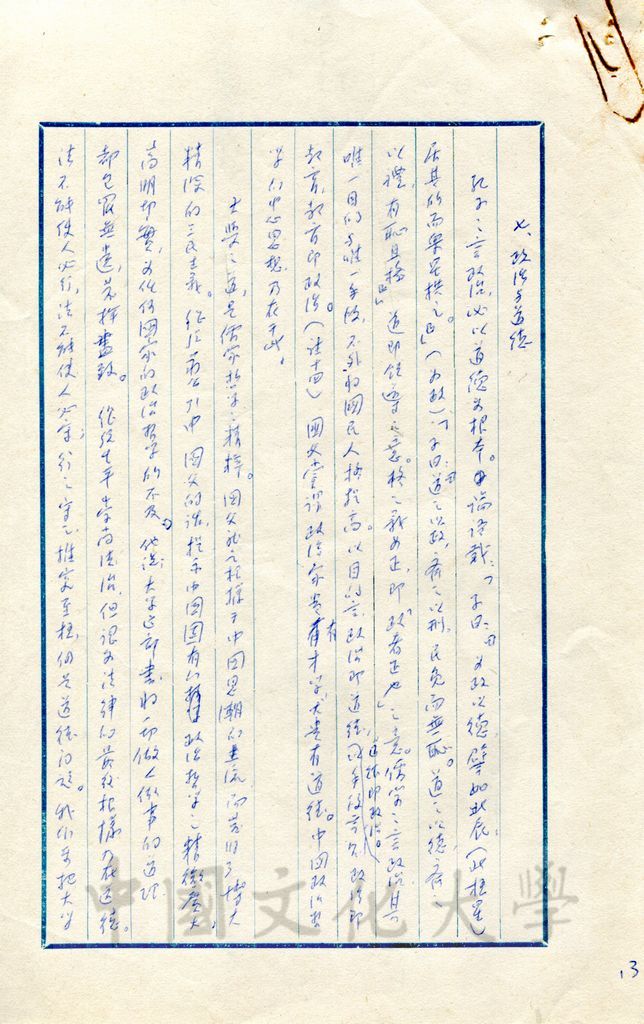 七、政治與道德
孔子之言政治，必以道德為根本。論語載：「子曰：『為政以德，譬如北辰，（北極星）
居其所而眾星拱之。』（為政）「子曰：『道之以政，齊之以刑，民免而無恥。道之以德，齊之
以禮，有恥且格』」道即領導之意。格之義為正，即「政者正也」之意。儒家之言政治，其
唯一目的與唯一手段，不外將國民人格提高。以目的言，政治即道德，道德即政治。以手段言，政治即
教育，教育即政治。國父嘗謂政治家貴有才學，尤貴有道德。中國政治哲
學的中心思想，乃在于此。
大學之道，是儒家哲學之精粹。國父就是根據于中國思潮的主流，而發明了博大
精深的三民主義。 國父的話，提示中國固有的政治哲學之精微廣大，
高明切實，為任何國家的政治哲學所不及。他說：大學這部書，將一切做人做事的道理，
都包羅無遺，發揮盡致。 生平崇尚法治，但認為法律的最後根據，乃在道德。
法不能使人必行，法不能使人必守；行之守之，推究至極，仍是道德問題。我們要把大學
13
中國文化大學